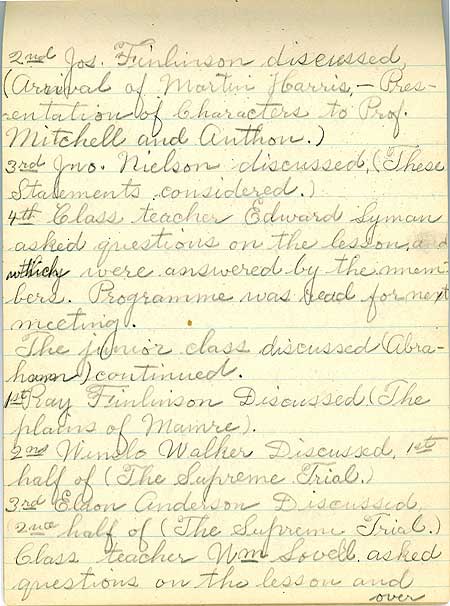 2nd Jos. Finlinson discussed,
(Arrival of Martin Harris, – Pres-
entation of Characters to Prof.
Mitchell and Anthon.)
3rd Jno. Nielson discussed, (These
Statements considered.)
4th Class teacher Edward Lyman
asked questions on the lesson, and
which were answered by the mem-
bers. Programme was read for next
meeting.
The junior class discussed (Abra-
ham) continued.
1st Ray Finlinson Discussed (The
plains of Mamre).
2nd Windo Walker Discussed, 1st
half of (The Supreme Trial.)
3rd Eldon Anderson Discussed,
(2nd half of (The Supreme Trial.)
Class teacher Wm Lovell asked
questions on the lesson and
over